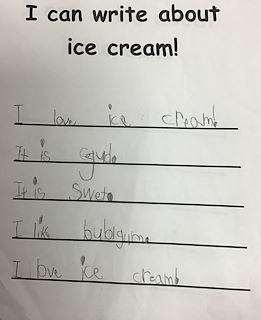 I can write about
ice cream!
I love ice cream!
It is
It is swet
I lik bublgum.
I love ice cream!